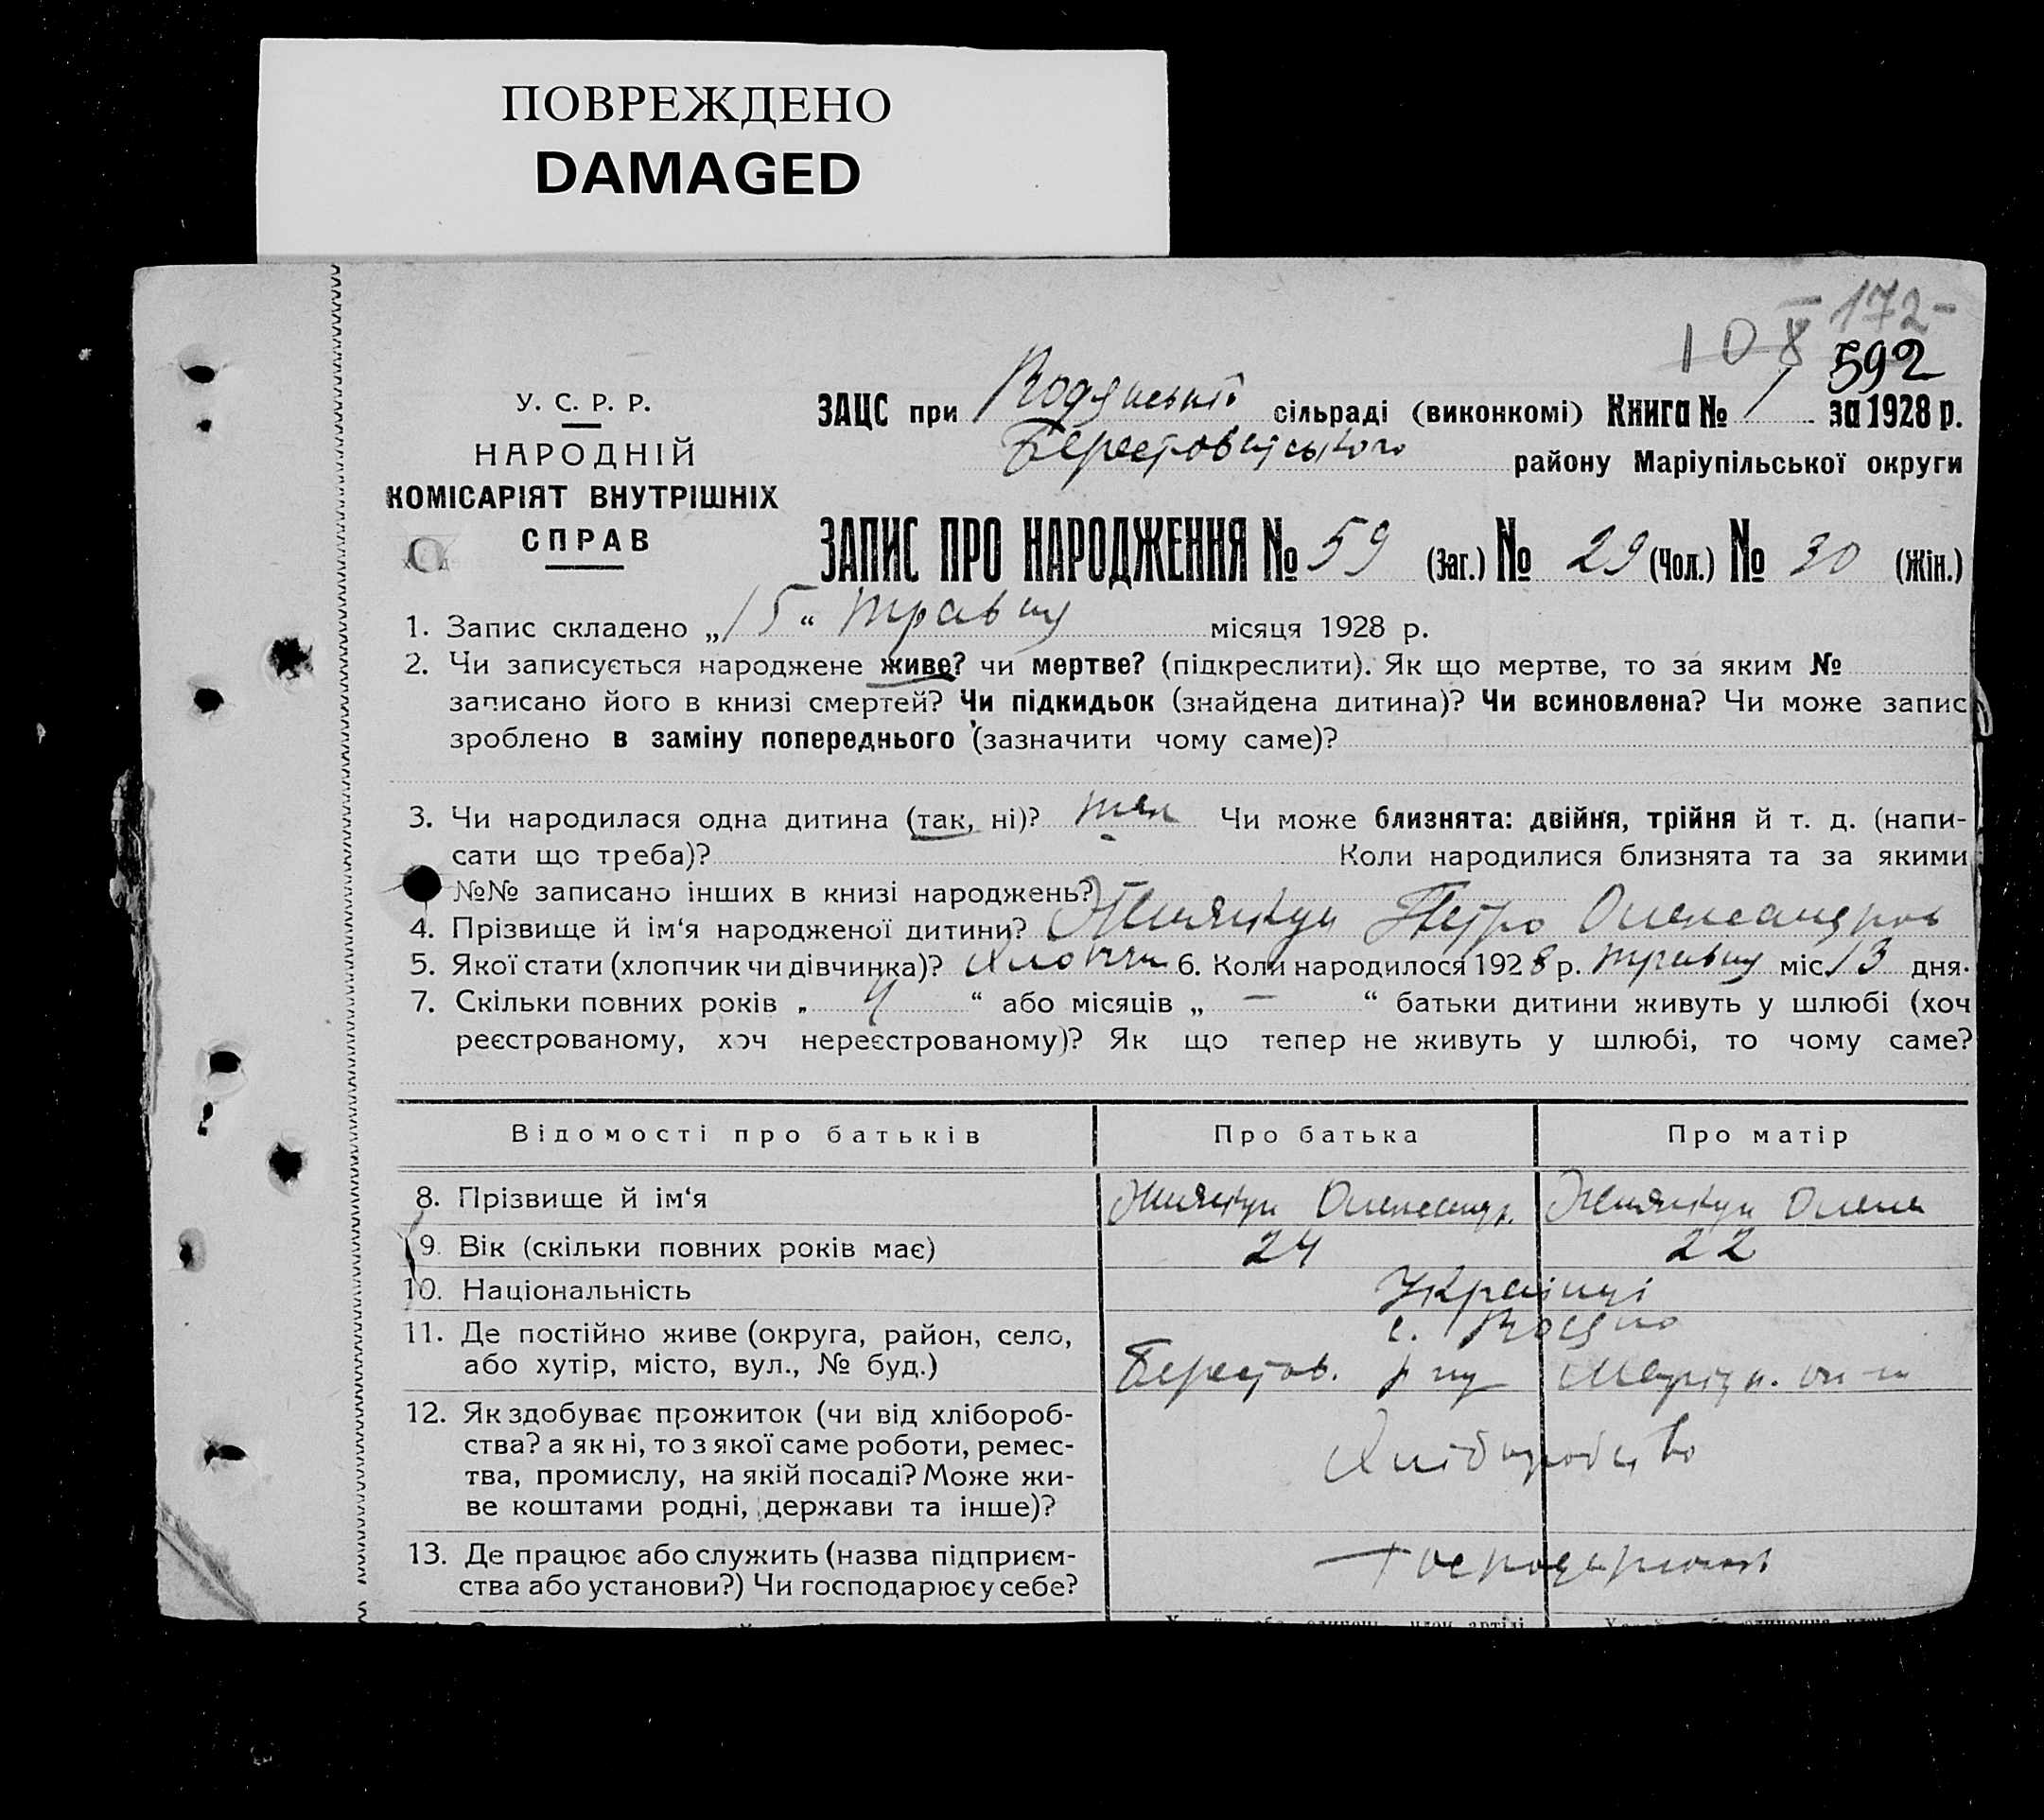 ПОВРЕЖДЕНО
DAMAGED
172-
108
592
У. С. Р. Р.
НАРОДНІЙ
КОМІСАРІЯТ ВНУТРІШНІХ
СПРАВ
ЗАЦС при Водянській сільраді (виконкомі) Книга № 1 за 1928 р.
Берестовецького району Маріупільської округи
ЗАПИС ПРО НАРОДЖЕННЯ № 59 (Заг.) № 29 (Чол.) № 30 (Жін.)
1. Запис складено „15“ травня місяця 1928 р.
2. Чи записується народжене живе? чи мертве? (підкреслити). Як що мертве, то за яким №
записано його в книзі смертей? Чи підкидьок (знайдена дитина)? Чи всиновлена? Чи може запис
зроблено в заміну попереднього (зазначити чому саме)?
3. Чи народилася одна дитина (так, ні)? так Чи може близнята: двійня, трійня й т. д. (напи-
сати що треба)? Коли народилися близнята та за якими
№№ записано інших в книзі народжень?
4. Прізвище й ім‘я народженої дитини? Петро Олександров
5. Якої стати (хлопчик чи дівчинка)? Хлопчик 6. Коли народилося 1928 р. травня міс. 13 дня.
7. Скільки повних років „ 4 “ або місяців „ — “ батьки дитини живуть у шлюбі (хоч
реєстрованому, хоч нереєстрованому)? Як що тепер не живуть у шлюбі, то чому саме?
Відомості про батьків Про батька Про матір
8. Прізвище й ім‘я Олександр. Олена
9. Вік (скільки повних років має) 24 22
10. Національність Українці
11. Де постійно живе (округа, район, село, с.
або хутір, місто, вул., № буд.) Берестов. р-ну Маріуп. ок-и
12. Як здобуває прожиток (чи від хлібороб-
ства? а як ні, то з якої саме роботи, ремес- Хліборобство
тва, промислу, на якій посаді? Може жи-
ве коштами родні, держави та інше)?
13. Де працює або служить (назва підприєм-
ства або установи?) Чи господарює у себе?